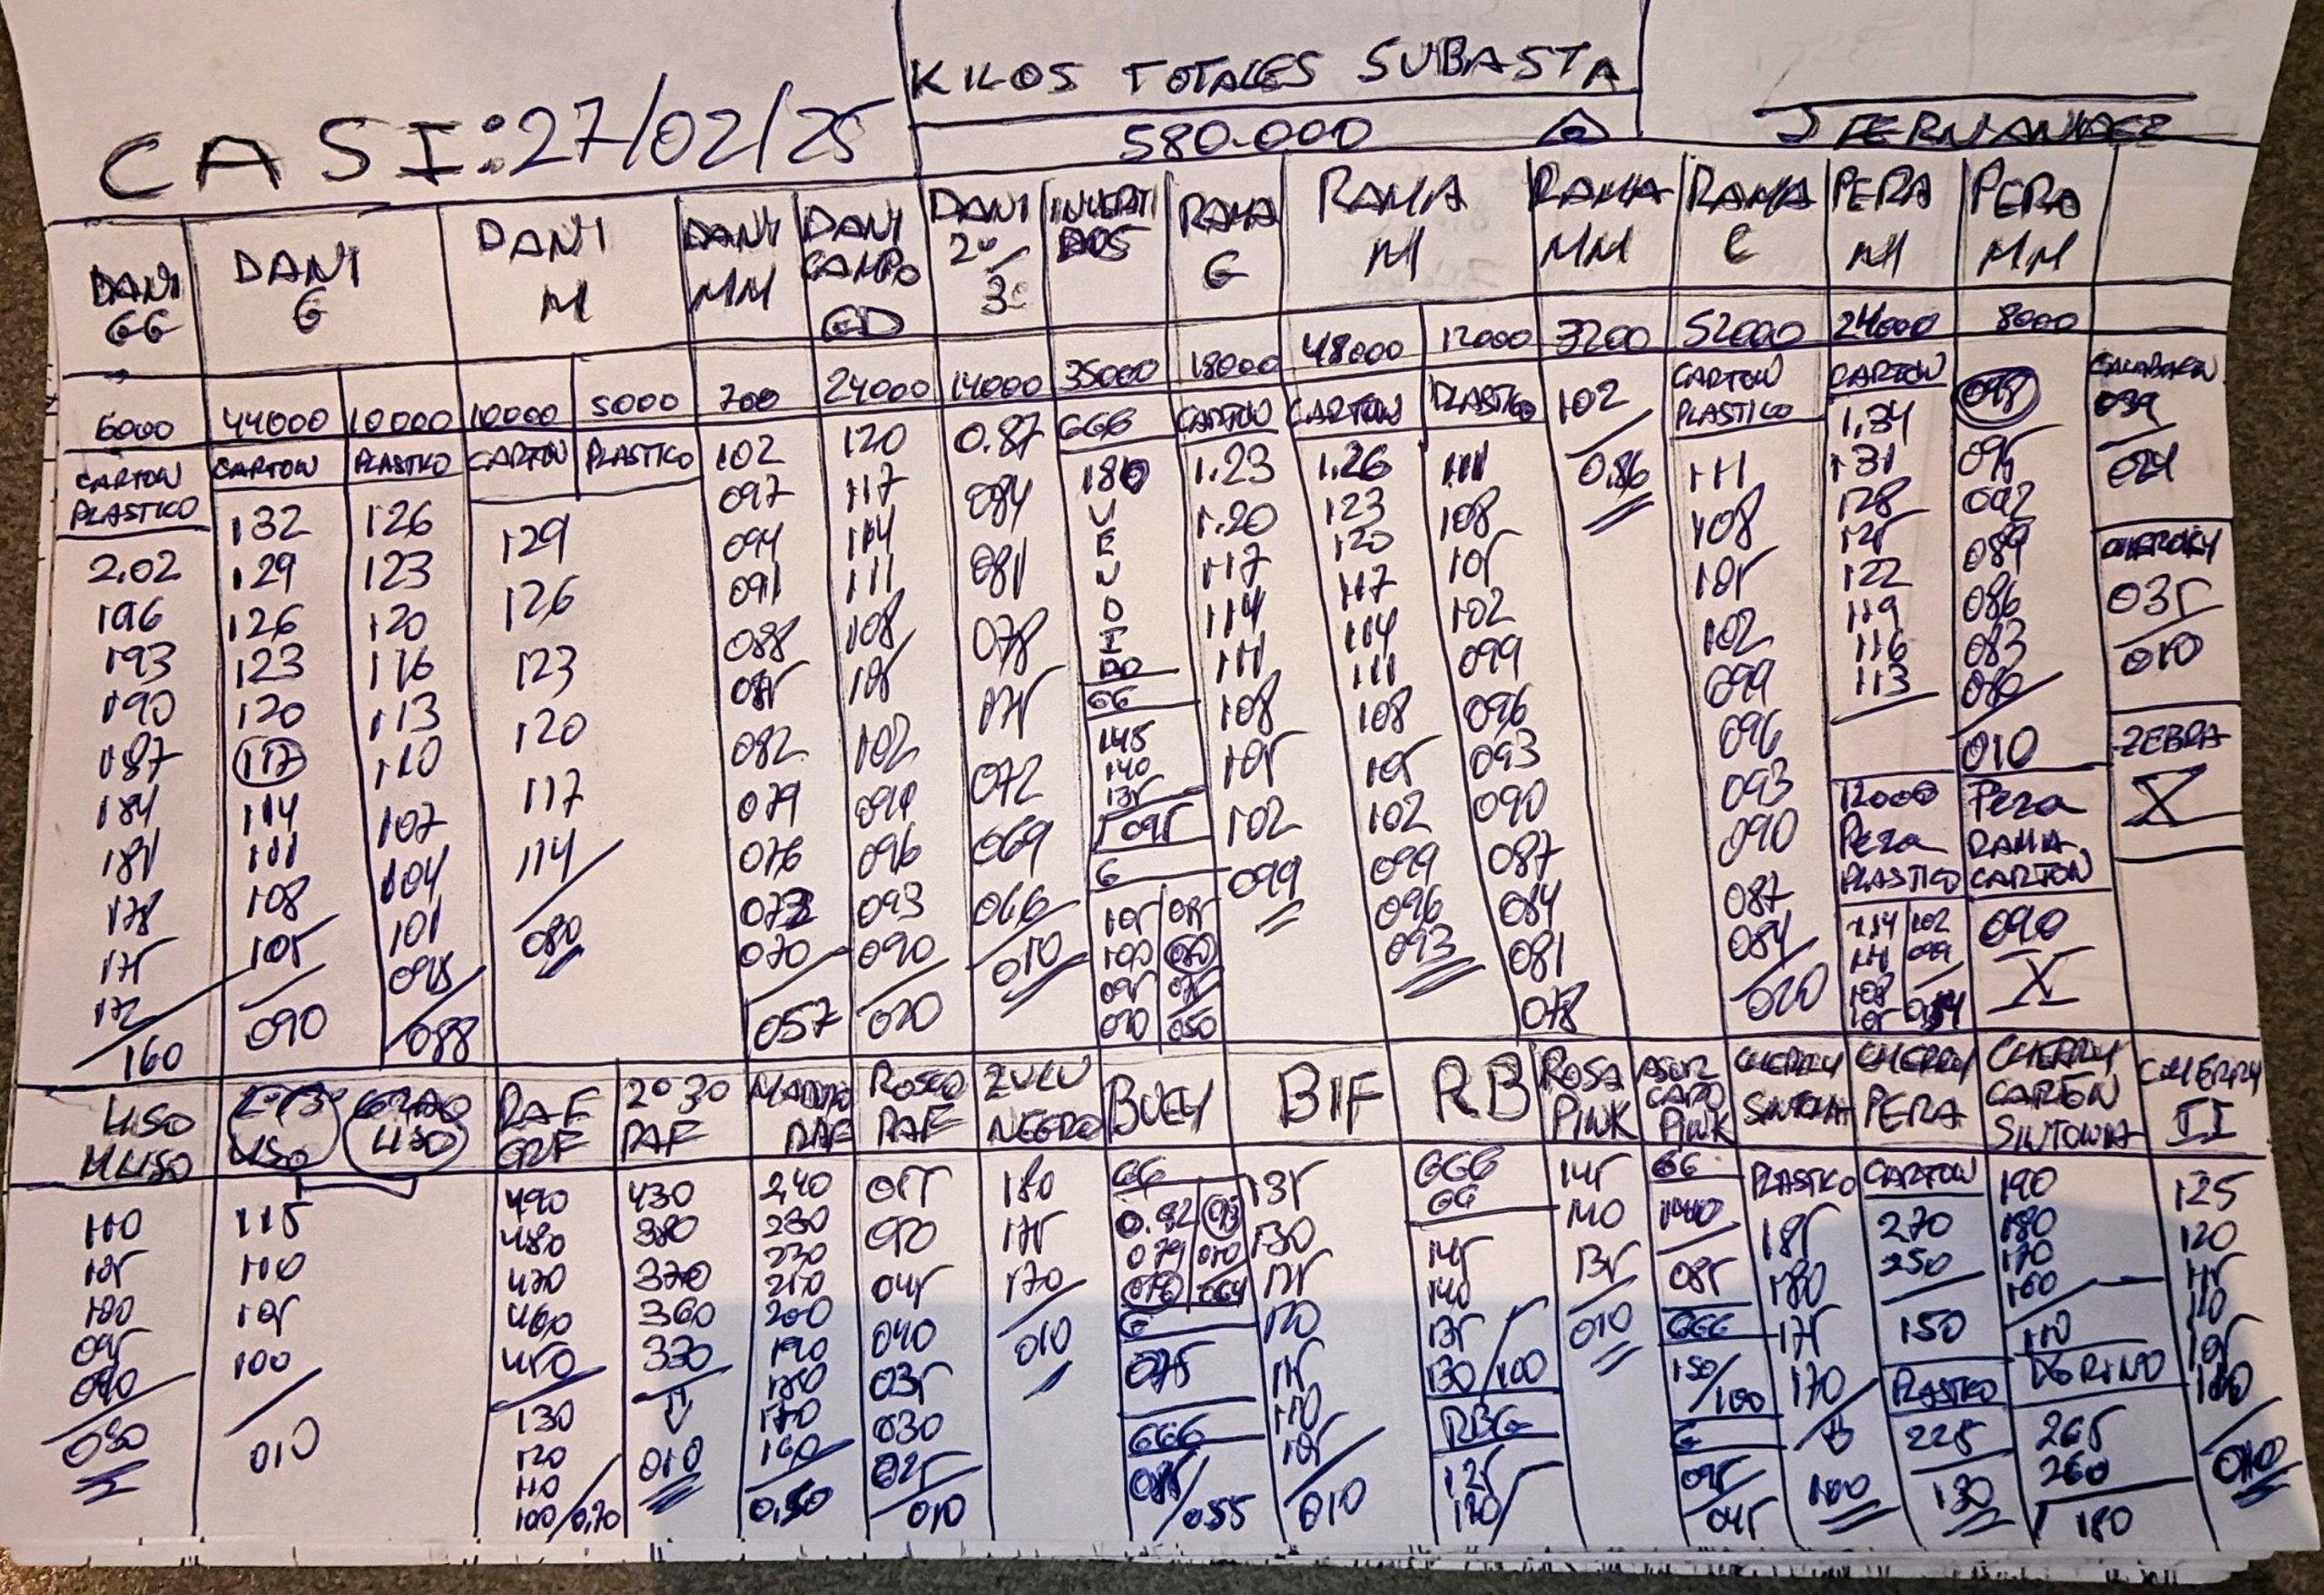 KILOS TOTALES SUBASTA
CASI: 27/02/25
580.000
J FERNANDEZ
DANI GG
DANI G
DANI M
DANI MM
DANI CAMPO GD
DANI 2º/3º
INVERTIDOS
RAMA G
RAMA M
RAMA MM
RAMA C
PERA M
PERA MM
6000 44000 10000 10000 5000 700 24000 14000 35000 18000 48000 12000 3200 52000 24000 8000
CARTON PLASTICO
2.02
196
193
190
187
184
181
178
175
172
160
CARTON
132
129
126
123
120
117
114
111
108
105
090
PLASTICO
126
123
120
116
113
110
107
104
101
098
088
CARTON
129
126
123
120
117
114
080
PLASTICO
102
097
094
091
088
085
082
079
076
073
070
057
120
117
114
111
108
105
102
099
096
093
090
020
0.87
084
081
078
075
072
069
066
010
GGG
180
VENDIDO
GG
145
140
135
095
G
105 085
100 080
095 075
050
CARTON
1.23
1.20
117
114
111
108
105
102
099
CARTON
1.26
123
120
117
114
111
108
105
102
099
096
093
PLASTICO
111
108
105
102
099
096
093
090
087
084
081
078
102
0.86
CARTON PLASTICO
111
108
105
102
099
096
093
090
087
084
020
CARTON
1.34
131
128
125
122
119
116
113
12000
Pera
PLASTICO
114 102
111 099
108
105
098
095
092
089
086
083
080
010
Pera
RAMA
CARTON
090
X
CALABACIN
039
024
CHEROKY
035
010
ZEBRA
X
LISO
MLISO
110
105
100
095
090
050
2º/3º LISO
LISO
115
100
105
100
010
RAF GRF
490
480
470
460
450
130
120
110
100/0,70
2º 3º RAF
430
380
370
360
330
010
RAF
240
230
220
210
200
190
180
170
160
0,50
ROSCO RAF
055
050
045
040
035
030
025
010
ZULU NEGRO
180
175
170
010
BUEY
GG
0.82
079
076 064
G
075
GGG
085
055
BIF
135
130
125
120
115
110
105
010
RB
GGG
GG
145
140
135
130/100
RBG
125
120
ROSA PINK
145
140
135
010
ASUR CAPO PINK
GG
140
085
GGG
150
100
G
095
045
CHERRY SINTONIA
PLASTICO
185
180
175
170
100
CHERRY PERA
CARTON
270
250
150
PLASTICO
225
130
CHERRY CARTON SINTONIA
190
180
170
160
110
265
260
180
CHERRY II
125
120
115
110
105
100
010